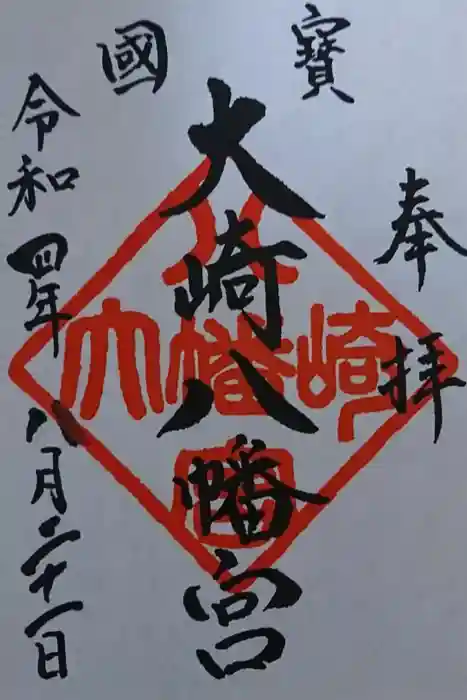 奉拝
國寶
大崎八幡宮
令和四年八月二十一日
大崎八幡宮